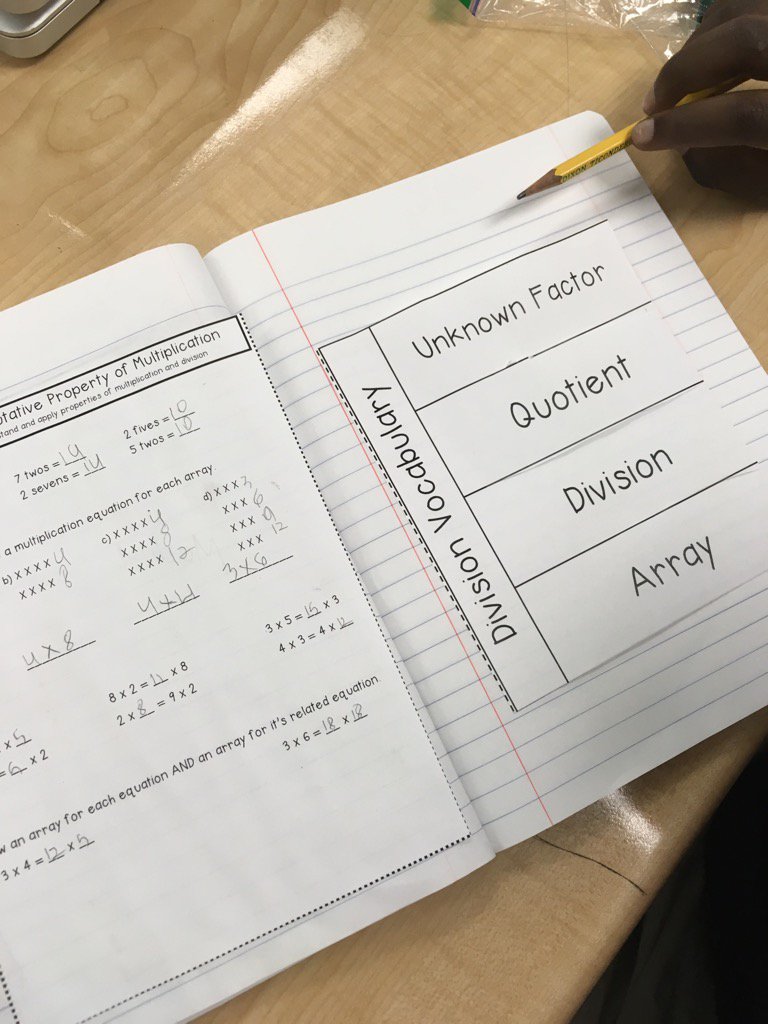 tative Property of Multiplication
tand and apply properties of multiplication and division
7 twos = 14
2 sevens = 14
2 fives = 10
5 twos = 10
a multiplication equation for each array.
b) x x x x 4
x x x x 8
4 x 8
c) x x x x 4
x x x x 8
x x x x 12
d) x x x 3
x x x 6
x x x 9
x x x 12
3x6
x 5
= 6 x 2
8 x 2 = 11 x 8
2 x 8 = 9 x 2
3 x 5 = 15 x 3
4 x 3 = 4 x 12
w an array for each equation AND an array for it's related equation
3 x 4 = 12 x 5
3 x 6 = 18 x 18
Division Vocabulary
Unknown Factor
Quotient
Division
Array
DIXON TICONDE